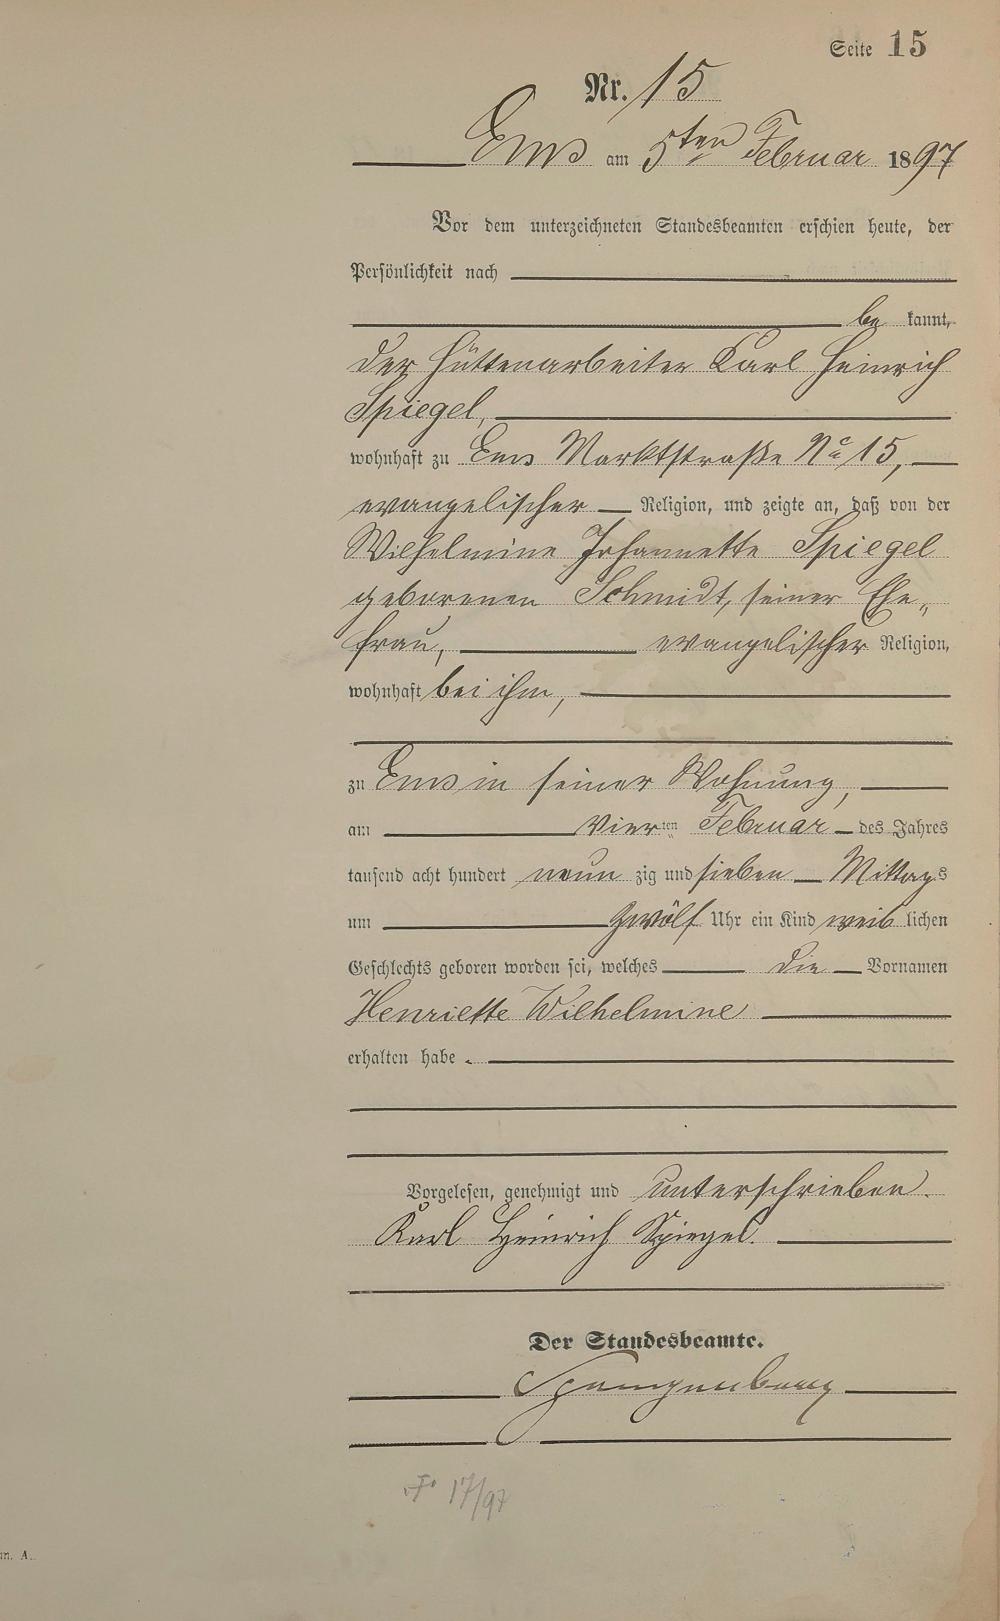 Seite 15
Nr. 15
Ems am 5ten Februar 1897
Vor dem unterzeichneten Standesbeamten erschien heute, der
Persönlichkeit nach
be kannt,
der Hüttenarbeiter Karl Heinrich
Spiegel,
wohnhaft zu Ems Marktstraße No 15,
evangelischer Religion, und zeigte an, daß von der
Wilhelmine Johannette Spiegel
geborenen Schmidt, seiner Ehe„
frau, evangelischer Religion,
wohnhaft bei ihm,
zu Ems in seiner Wohnung,
am vierten Februar des Jahres
tausend acht hundert neun zig und sieben Mittags
um zwölf Uhr ein Kind weib lichen
Geschlechts geboren worden sei, welches die Vornamen
Henriette Wilhelmine
erhalten habe.
Vorgelesen, genehmigt und unterschrieben.
Karl Heinrich Spiegel.
Der Standesbeamte.
Spangenberg
17/97
m. A.